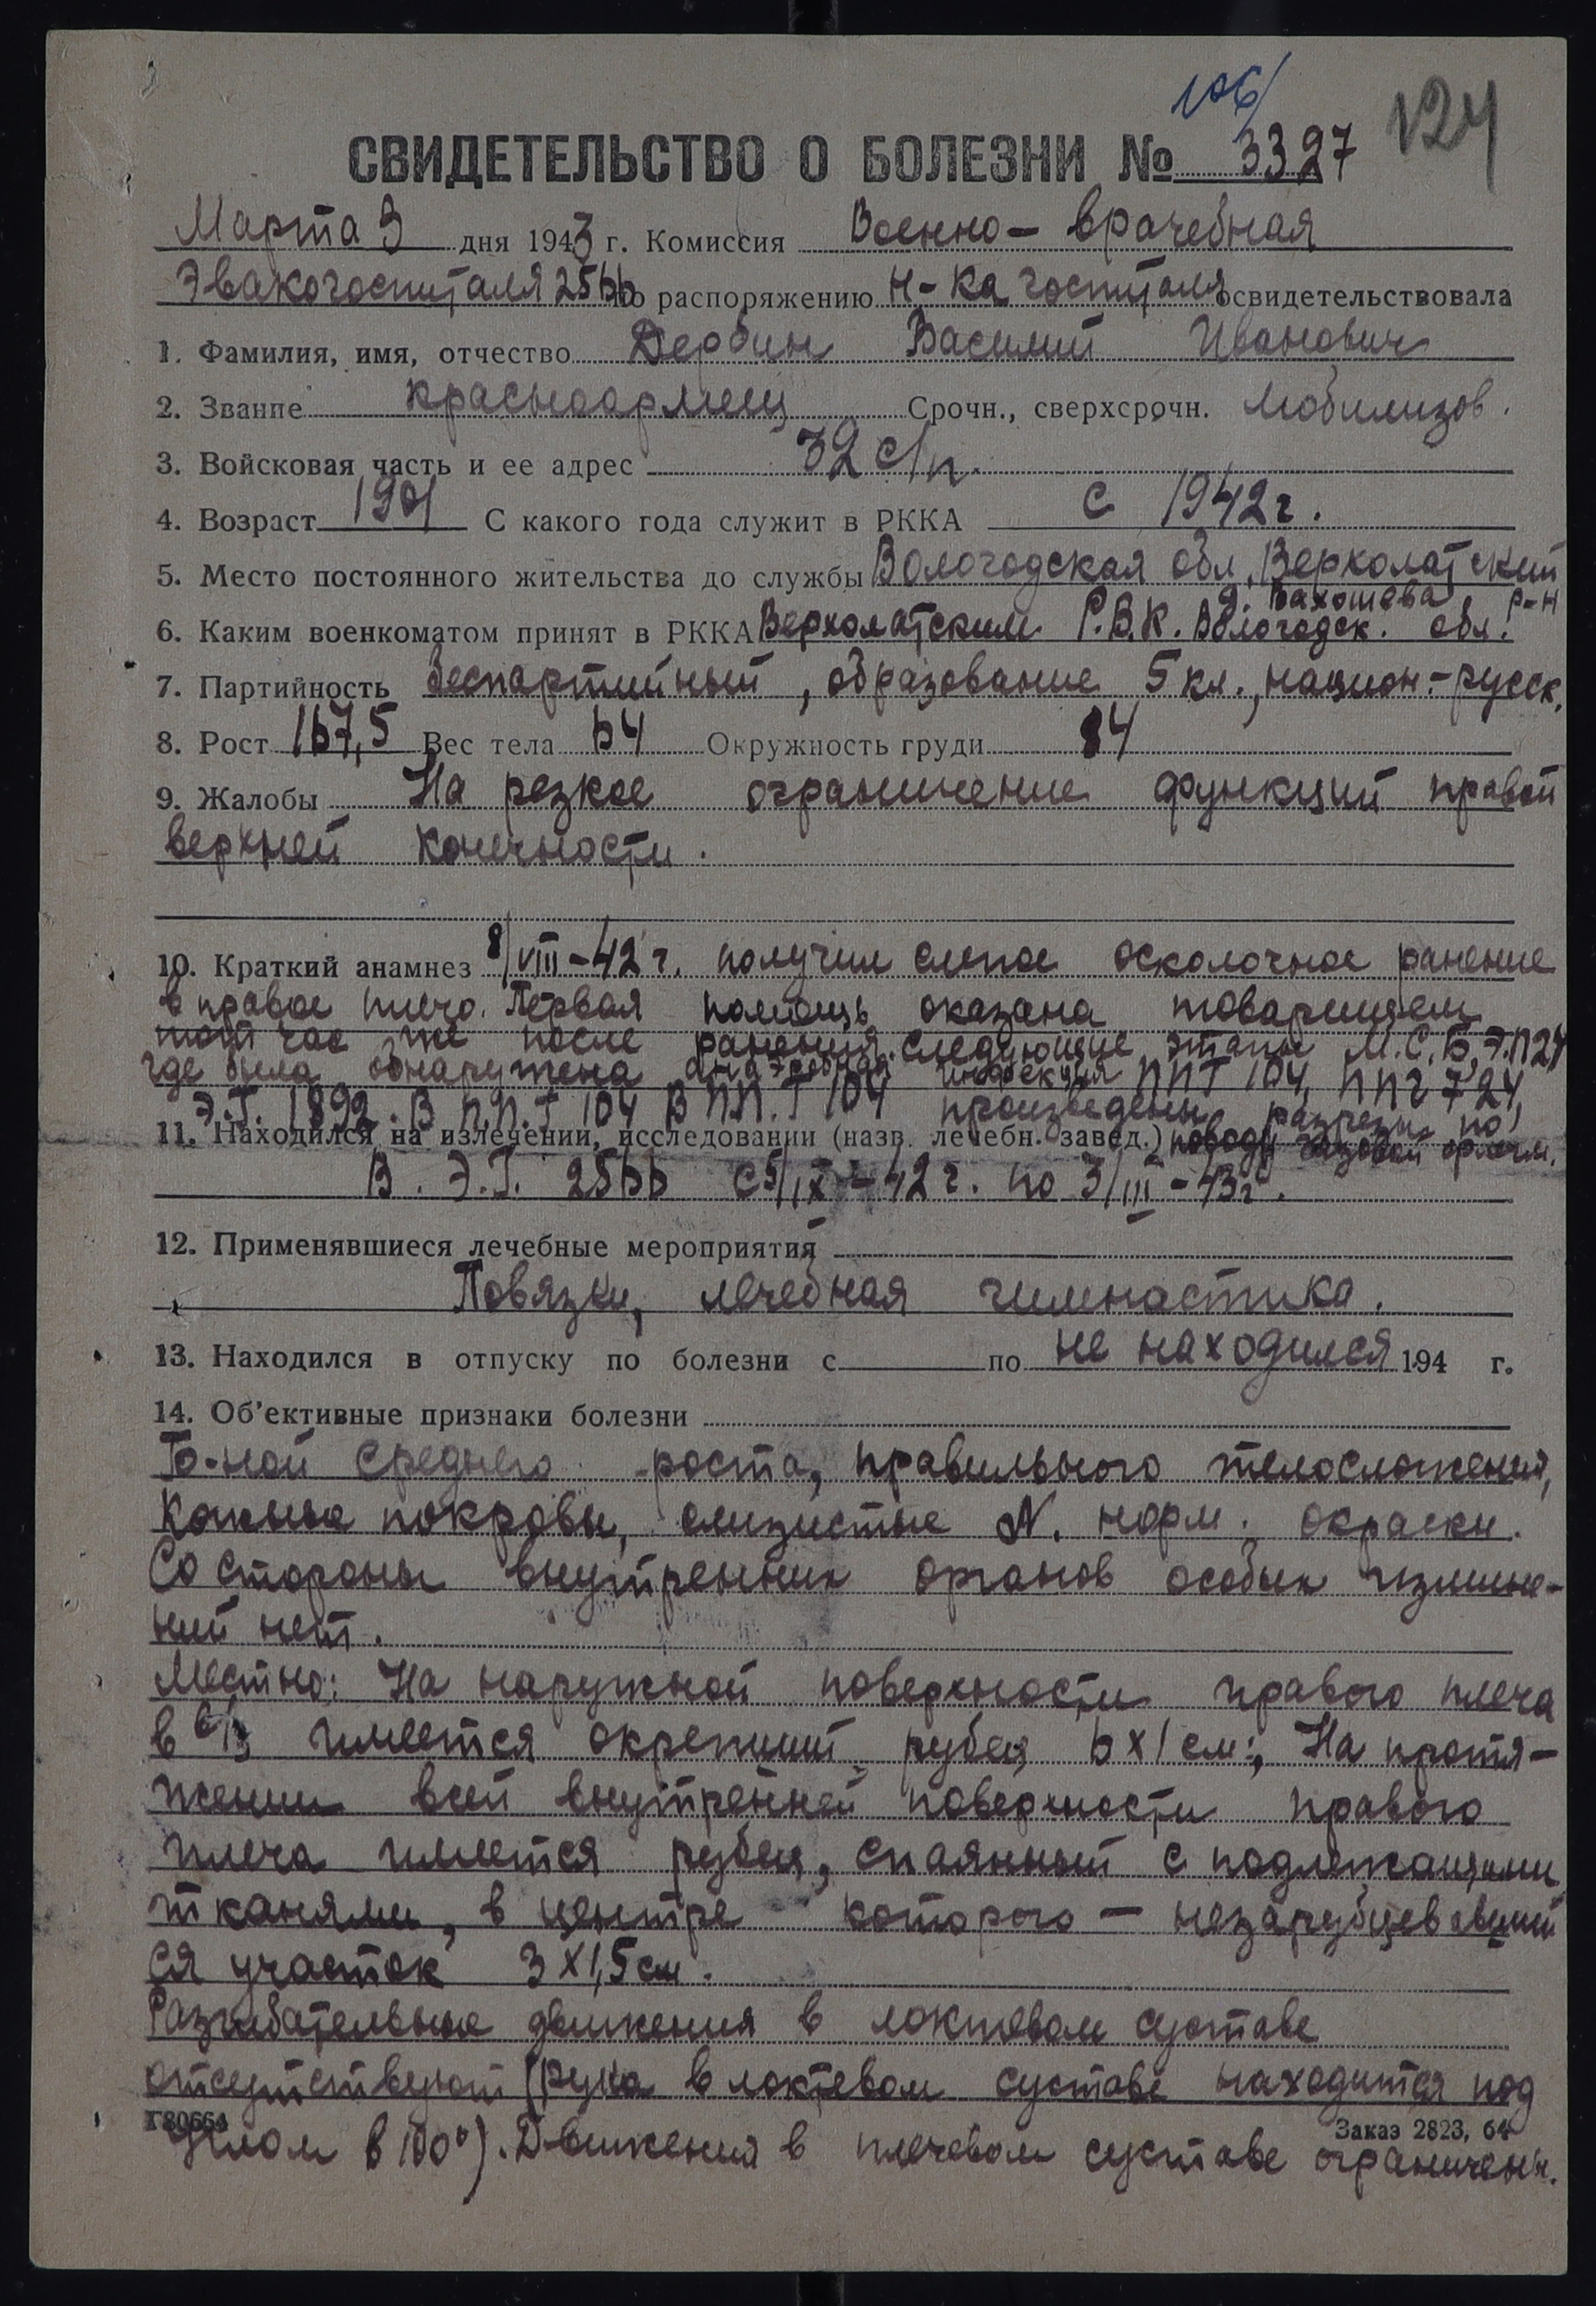 106/
124
СВИДЕТЕЛЬСТВО О БОЛЕЗНИ № 3327
Марта 3 дня 1943 г. Комиссия Военно-врачебная
Эвакогоспиталя 2566 по распоряжению н-ка госпиталя освидетельствовала
1. Фамилия, имя, отчество Дербин Василий Иванович
2. Звание красноармеец Срочн., сверхсрочн. мобилизов.
3. Войсковая часть и ее адрес 32 с/п.
4. Возраст 1901 С какого года служит в РККА с 1942 г.
5. Место постоянного жительства до службы Вологодская обл, Верхолатский
р-н
6. Каким военкоматом принят в РККА Верхолатским Р.В.К. Вологодск. обл.
7. Партийность беспартийный, образование 5 кл., национ.-русск.
8. Рост 167,5 Вес тела 64 Окружность груди 84
9. Жалобы На резкое ограничение функций правой
верхней конечности.
10. Краткий анамнез 8/VIII-42 г. получил слепое осколочное ранение
в правое плечо. Первая помощь оказана товарищем
тот час же после ранения. Следующие этапы М.С.Б, Э.П 24
где была обнаружена анаэробная инфекция ППГ 104, ППГ 724,
Э.Г. 1892. В П.П.Г 104 В П.П.Г 104 произведены разрезы по
11. Находился на излечении, исследовании (назв. лечебн. завед.) поводу газовой флегм.
В. Э.Г. 2566 с 5/IX-42 г. по 3/III-43 г.
12. Применявшиеся лечебные мероприятия
Повязки, лечебная гимнастика.
13. Находился в отпуску по болезни с по не находился 194 г.
14. Об'ективные признаки болезни
Б-ной среднего роста, правильного телосложения,
кожные покровы, слизистые N. норм. окраски.
Со стороны внутренних органов особых измине-
ний нет.
Местно: На наружной поверхности правого плеча
в с/з имеется окрепший рубец 6х1 см; На протя-
жении всей внутренней поверхности правого
плеча имеется рубец, спаянный с подлежащими
тканями, в центре которого — незарубцевавший
ся участок 3х1,5 см.
Разгибательные движения в локтевом суставе
отсутствуют (рука в локтевом суставе находится под
Г80664
Заказ 2823, 64
углом в 100°). Движения в плечевом суставе ограничены.